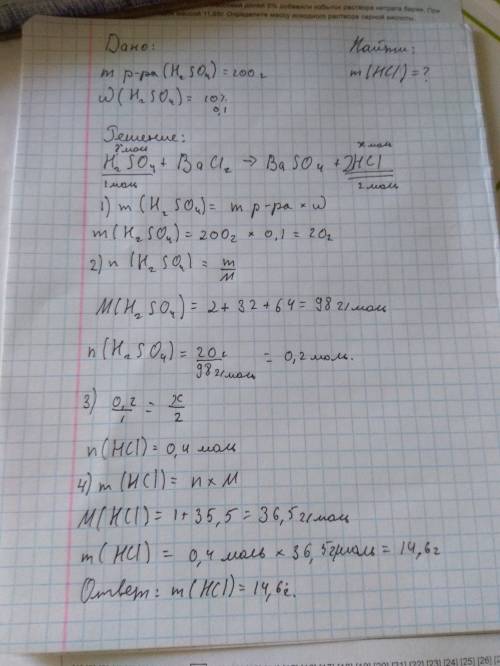 долей 5% добавили избыток раствора нитрата бария. При
массой 11,65г. Определите массу исходного раствора серной кислоты.
Дано: Найти:
m р-ра (H₂SO₄) = 200г m(HCl) = ?
ω(H₂SO₄) = 10%
0,1
Решение:
x моль
H₂SO₄ + BaCl₂ → BaSO₄ + 2HCl
1 моль 2 моль
1) m(H₂SO₄) = m р-ра × ω
m(H₂SO₄) = 200г × 0,1 = 20г
2) n(H₂SO₄) = m/M
M(H₂SO₄) = 2 + 32 + 64 = 98 г/моль
n(H₂SO₄) = 20г/98 г/моль = 0,2 моль.
3) 0,2/1 = x/2
n(HCl) = 0,4 моль
4) m(HCl) = n × M
M(HCl) = 1 + 35,5 = 36,5 г/моль
m(HCl) = 0,4 моль × 36,5 г/моль = 14,6г
Ответ: m(HCl) = 14,6г.